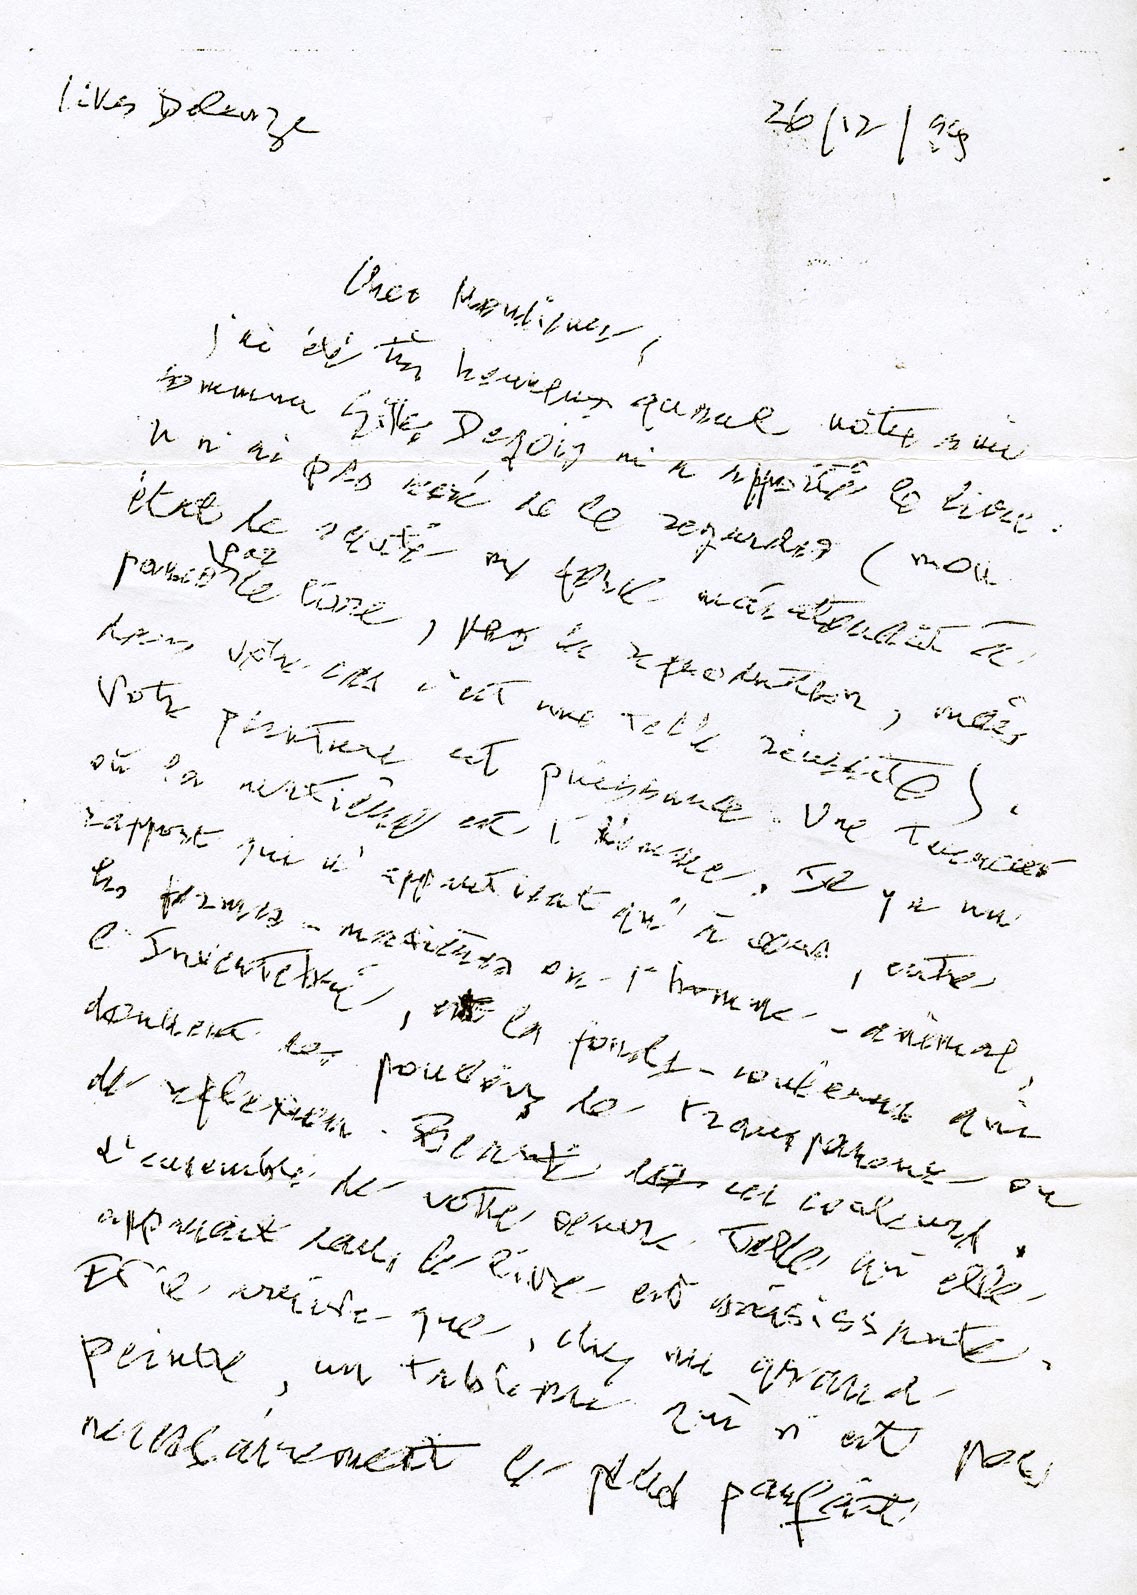 Gilles Deleuze
26/12/
Cher Monsieur,
j'ai été très heureux quand notre ami
commun Gilles m'a apporté le livre.
Je n'ai pas cessé de le regarder (mon
état de santé me force maintenant à
passer par le livre, par la reproduction, mais
dans votre cas c'est une telle réussite).
Votre peinture est puissance. Une
où la matière est l'homme. Il y a un
rapport qui n'appartient qu'à vous, entre
les formes-matières ou l'homme-animal,
et les fonds-couleurs qui
donnent des pouvoirs de transparence ou
de réflexion. Beauté de ces couleurs.
L'ensemble de votre oeuvre, telle qu'elle
apparaît dans le livre est saisissante.
Et il arrive que, chez un grand
peintre, un tableau qui n'est pas
nécessairement le plus parfait